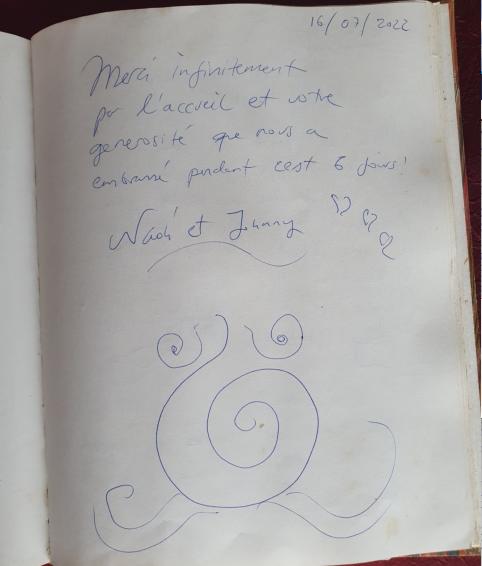 16/07/2022
Merci infinitement
par l'accueil et votre
generosité que nous a
embrassé pendant cest 6 jours!
et Johnny